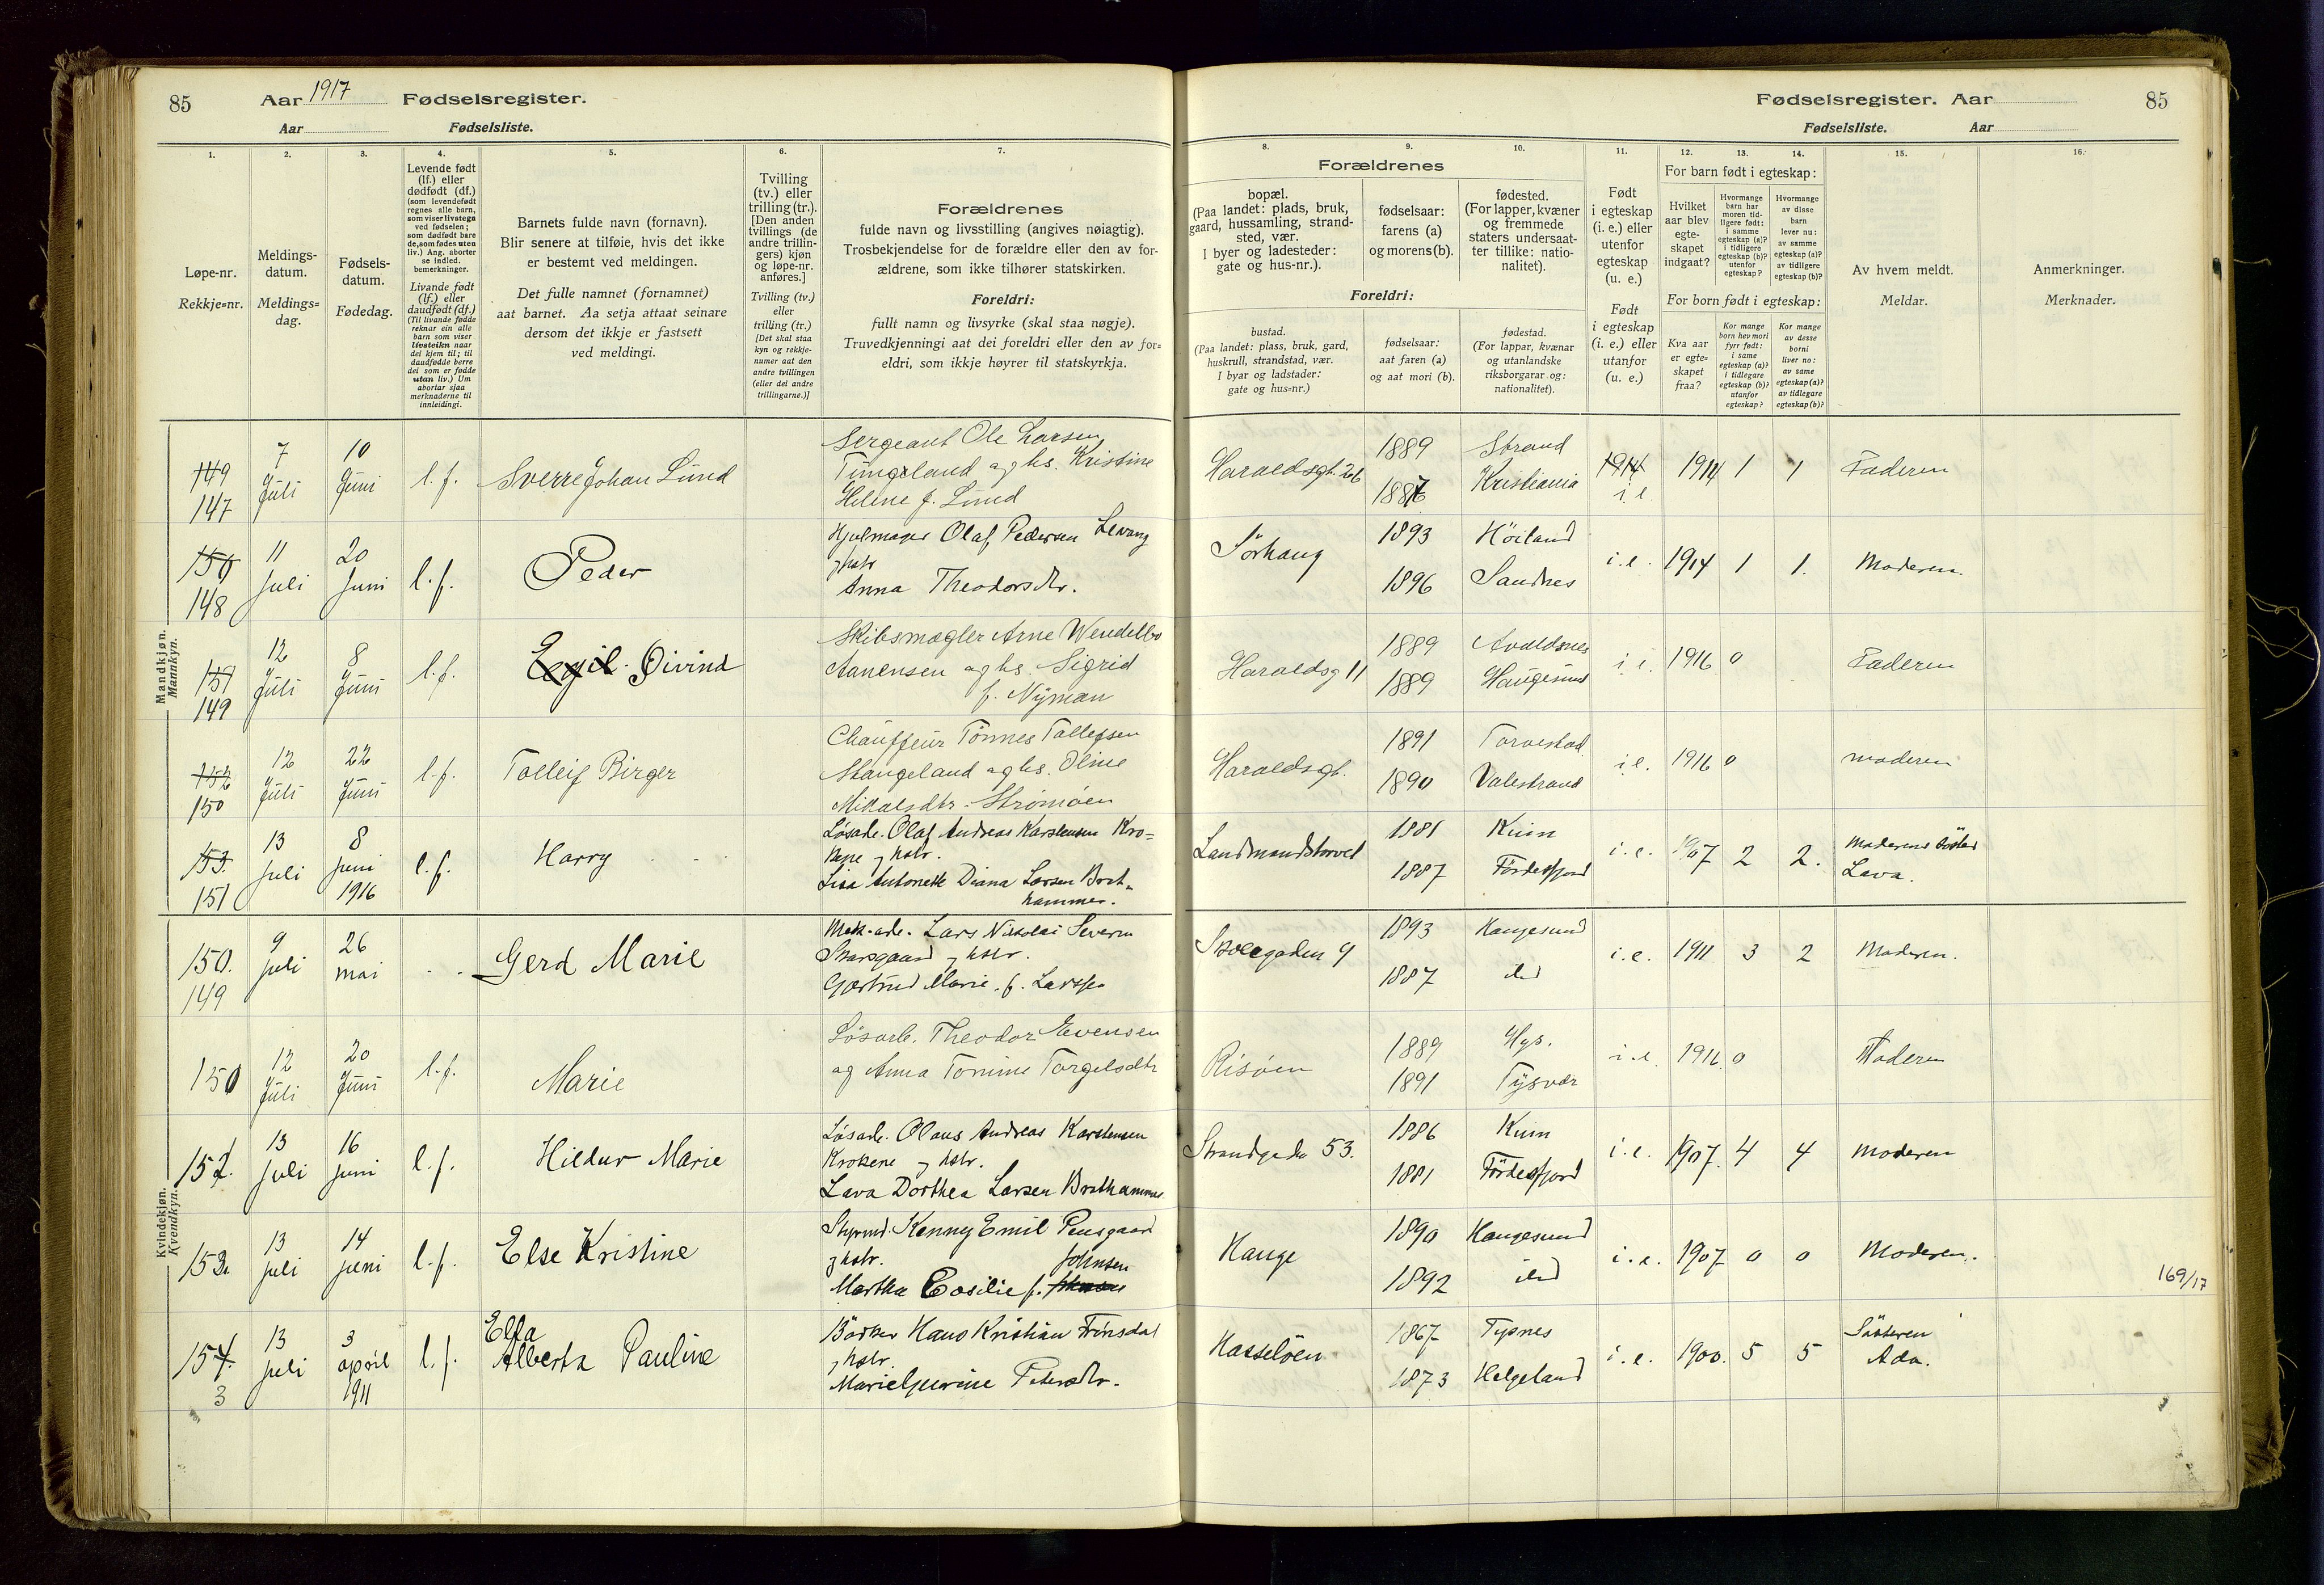 85 Aar 1917 Fødselsregister.
Aar Fødselsliste.
Fødselsregister. Aar 85
Fødselsliste. Aar
1. 2. 3. 4. 5. 6. 7. 8. 9. 10. 11. 12. 13. 14. 15. 16.
Løpe-nr.
Rekkje=nr.
Meldings-
datum.
Meldings=
dag.
Fødsels-
datum.
Fødedag.
Levende født
(lf.) eller
dødfødt (df.)
(som levendefødt
regnes alle barn,
som viser livstegn
ved fødselen;
som dødfødt bare
de, som fødes uten
liv.) Ang. aborter
se indled.
bemerkninger.
Livande født
(lf.) eller
daudfødt (df.)
(Til livande fødde
reknar ein alle
barn som viser
livsteikn naar
dei kjem til; til
daudfødde berre
dei som er fødde
utan liv.) Um
abortar sjaa
merknaderne til
innleidingi.
Barnets fulde navn (fornavn).
Blir senere at tilføie, hvis det ikke
er bestemt ved meldingen.
Det fulle namnet (fornamnet)
aat barnet. Aa setja attaat seinare
dersom det ikkje er fastsett
ved meldingi.
Tvilling
(tv.) eller
trilling (tr.).
[Den anden
tvillings (de
andre trillin-
gers) kjøn
og løpe-nr.
anføres.]
Tvilling (tv.)
eller
trilling (tr.)
[Det skal staa
kyn og rekkje-
numer aat den
andre tvillingen
(eller dei andre
trillingarne.)]
Forældrenes
fulde navn og livsstilling (angives nøiagtig).
Trosbekjendelse for de forældre eller den av for-
ældrene, som ikke tilhører statskirken.
Foreldri:
fullt namn og livsyrke (skal staa nøgje).
Truvedkjenningi aat dei foreldri eller den av for=
eldri, som ikkje høyrer til statskyrkja.
Forældrenes
bopæl.
(Paa landet: plads, bruk,
gaard, hussamling, strand-
sted, vær.
I byer og ladesteder:
gate og hus-nr.).
fødselsaar:
farens (a)
og morens (b).
fødested.
(For lapper, kvæner
og fremmede
staters undersaat-
ter tillike: natio-
nalitet).
Foreldri:
bustad.
(Paa landet: plass, bruk, gard,
huskrull, strandstad, vær.
I byar og ladstader:
gate og hus=nr.)
fødselsaar:
aat faren (a)
og aat mori (b).
fødestad.
(For lappar, kvænar
og utanlandske
riksborgarar og:
nationalitet).
Født
i egteskap
(i. e.) eller
utenfor
egteskap
(u. e.)
Født
i egteskap
(i. e.) eller
utanfor
(u. e.)
For barn født i egteskap:
Hvilket
aar blev
egte-
skapet
indgaat?
Hvormange
barn har
moren tid-
ligere født:
i samme
egteskap (a)?
i tidligere
egteskap (b)?
utenfor
egteskap?
Hvormange
av disse
barn
lever nu:
av samme
egteskap (a)?
av tidligere
egteskap (b)?
For born født i egteskap:
Kva aar
er egte=
skapet
fraa?
Kor mange
born hev mori
fyrr født:
i same
egteskap (a)?
i tidlegare
egteskap (b)?
utanfor
egteskap?
Kor mange
av desse
borni
liver no:
av same
egteskap (a)?
av tidlegare
egteskap (b)?
Av hvem meldt.
Meldar.
Anmerkninger.
Merknader.
Mandkjøn.
Mannkyn.
149 147 7 Juli 10 Juni l. f. Sverre Johan Lund
Sergeant Ole Larsen
Tungeland og hs. Kristine
Helene f. Lund
Haraldsgt. 26 1889 Strand 1887 Kristiania 1914 i.e 1914 1 1 Faderen
150 148 11 Juli 20 Juni l. f. Peder
Hjulmager Olaf Pedersen Levang
og hstr
Anna Theodorsdtr.
Sörhaug 1893 Höiland 1896 Sandnes i. e. 1914 1 1. Moderen.
151 149 12 Juli 8 Juni l. f. Egil Øivind
Skibsmægler Arne Wendelbo
Aanensen og hs. Sigrid
f. Nyman
Haraldsg 11 1889 Avaldsnes 1889 Haugesund i. e. 1916 0 Faderen
152 150 12 Juli 22 Juni l. f. Tolleif Birger
Chauffeur Tönnes Tollefsen
Stangeland og hs. Oline
Mikalsdtr. Strömöen
Haraldsgt. 1891 Torvestad 1890 Valestrand i. e. 1916 0 moderen
153. 151 13 Juli 8 Juni 1916 l. f. Harry
Løsarb. Olaf Andreas Karstensen Kro=
kene og hstr.
Lisa Antonette Diana Larsen Brat-
hammer.
Landmandstorvet 1881 Kuin 1887 Fördesfjord i. e. 1907 2 2. Moderens Søster
Lava.
Kvindekjøn.
Kvendkyn.
150. 149 9 Juli 26 mai Gerd Marie
Mek. arb. Lars Nikolai Severin
Skarsgaard og hstr.
Gjertrud Marie f. Larssen
Skolegaden 9 1893 Haugesund 1887 ibd i. e. 1911 3 2 Moderen.
150 12 Juli 20 Juni l. f. Marie
Løsarb. Theodor Evensen
og Anna Tomine Torgelsdtr
Risöen 1889 Hgs. 1891 Tysvær i. e. 1916 0 Moderen
152. 13 Juli 16 Juni l. f. Hildur Marie
Løsarb. Olaus Andreas Karstensen
Krokene og hstr.
Lava Dorthea Larsen Brathammer
Strandgade 53. 1886 Kuin 1881 Fördesfjord i. e. 1907. 4 4 Moderen
153. 13 Juli 14 Juni l. f. Else Kristine
Styrmd. Kenny Emil Pensgaard
og hstr. Johnsen
Martha Cosilie f.
Hauge 1890 Haugesund 1892 ibd i. e. 1907 0 0 Moderen.
169/17
154. 3 13 Juli 3 april 1911 l. f. Elfa
Alberta Pauline
Bödker Hans Kristian Trönsdal
og hstr.
Marie Gjurine Petersdtr.
Hasselöen 1867 Tysnes 1873 Helgeland i. e. 1900. 5 5 Søsteren
Ada.